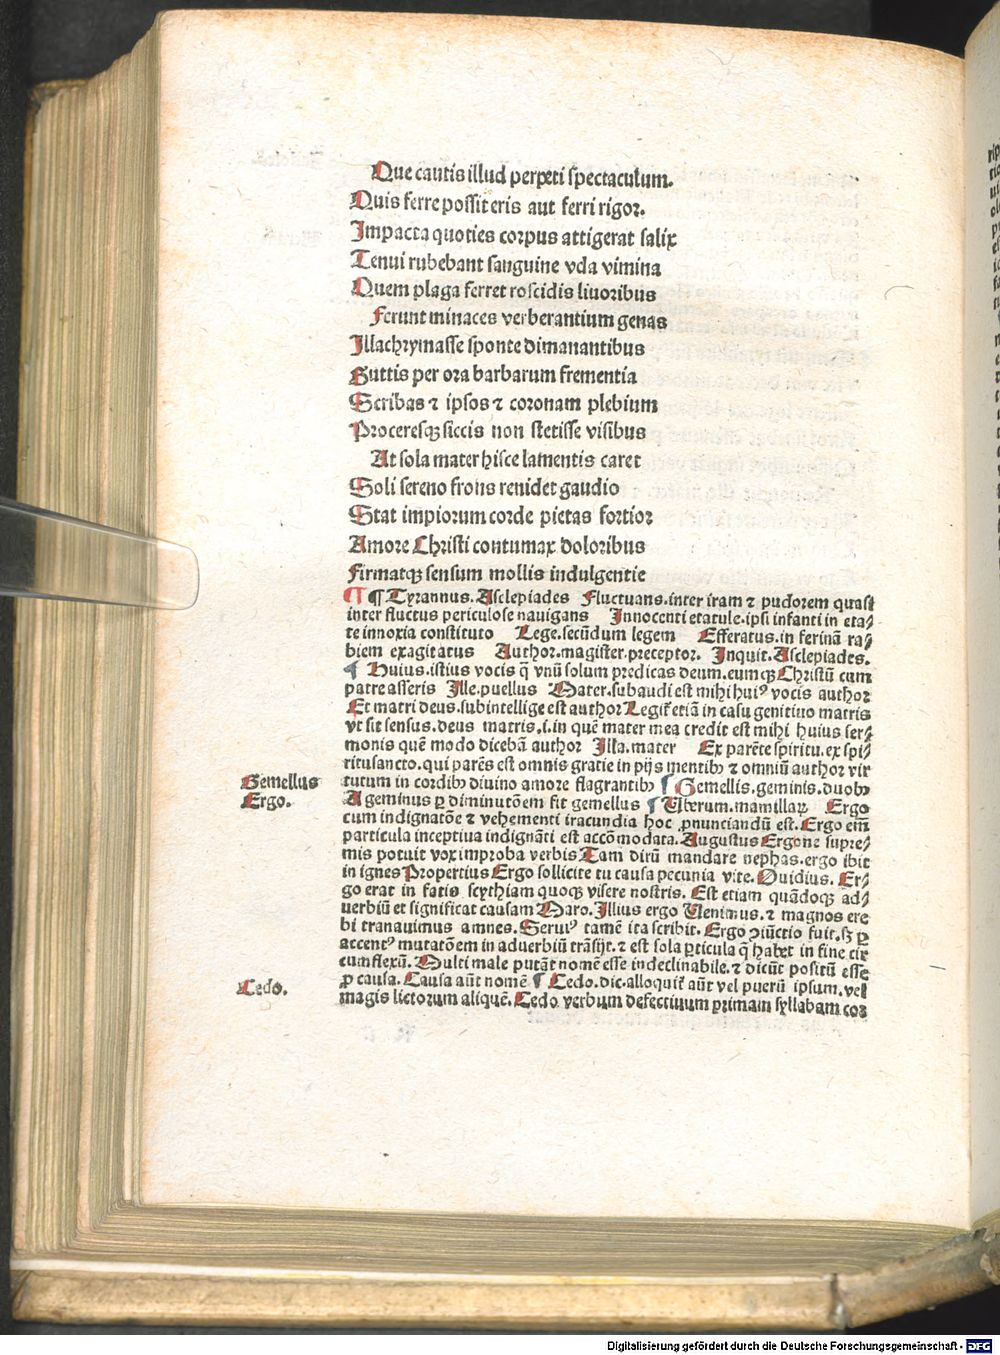 Que cautis illud perpeti spectaculum.
Quis ferre possit eris aut ferri rigor.
Impacta quoties corpus attigerat salix
Tenui rubebant sanguine vda vimina
Quem plaga ferret roscidis liuoribus
Ferunt minaces verberantium genas
Illachrymasse sponte dimanantibus
Guttis per ora barbarum frementia
Scribas ⁊ ipsos ⁊ coronam plebium
Proceresqꝫ siccis non stetisse visibus
At sola mater hisce lamentis caret
Soli sereno frons renidet gaudio
Stat impiorum corde pietas fortior
Amore Christi contumax doloribus
Firmatqꝫ sensum mollis indulgentie
¶ ¶ Tyrannus. Asclepiades Fluctuans. inter iram ⁊ pudorem quasi
inter fluctus periculose nauigans Innocenti etatule. ipsi infanti in eta⸗
te innoxia constituto Lege. secūdum legem Efferatus. in ferinā ra⸗
biem exagitatus Author. magister. preceptor. Inquit. Asclepiades.
¶ Huius. istius vocis q̄ vnū solum predicas deum. eumqꝫ Christū cum
patre asseris Ille. puellus Mater. subaudi est mihi huiꝰ vocis author
Et matri deus. subintellige est author Legit̄ etiā in casu genitiuo matris
vt sit sensus. deus matris. i. in quē mater mea credit est mihi huius ser⸗
monis quē modo dicebā author Illa. mater Ex parēte spiritu. ex spi⸗
ritu sancto. qui parēs est omnis gratie in pijs mentibꝫ ⁊ omniū author vir
Gemellus tutum in cordibꝫ diuino amore flagrantibꝫ ¶ Gemellis. geminis. duobꝫ
Ergo. A geminus ꝑ diminutōem fit gemellus ¶ Vberum. mamillaꝝ Ergo
cum indignatōe ⁊ vehementi iracundia hoc ꝓnunciandū est. Ergo em̄
particula inceptiua indignāti est accōmodata. Augustus Ergone supre⸗
mis potuit vox improba verbis Tam dirū mandare nephas. ergo ibit
in ignes Propertius Ergo sollicite tu causa pecunia vite. Ouidius. Er⸗
go erat in fatis scythiam quoqꝫ visere nostris. Est etiam quādoqꝫ ad⸗
uerbiū et significat causam Maro. Illius ergo Venimus. ⁊ magnos ere
bi tranauimus amnes. Seruiꝰ tamē ita scribit. Ergo ↄiūctio fuit. sꝫ ꝑ
accentꝰ mutatōem in aduerbiū trāsijt. ⁊ est sola ꝑticula q̄ habet in fine cir
cumflexū. Multi male putāt nomē esse indeclinabile. ⁊ dicūt positū esse
ꝓ causa. Causa aūt nomē ¶ Cedo. dic. alloquit̄ aūt vel puerū ipsum. vel
Cedo. magis lictorum aliquē. Cedo verbum defectiuum primam syllabam cor
Digitalisierung gefördert durch die Deutsche Forschungsgemeinschaft - DFG